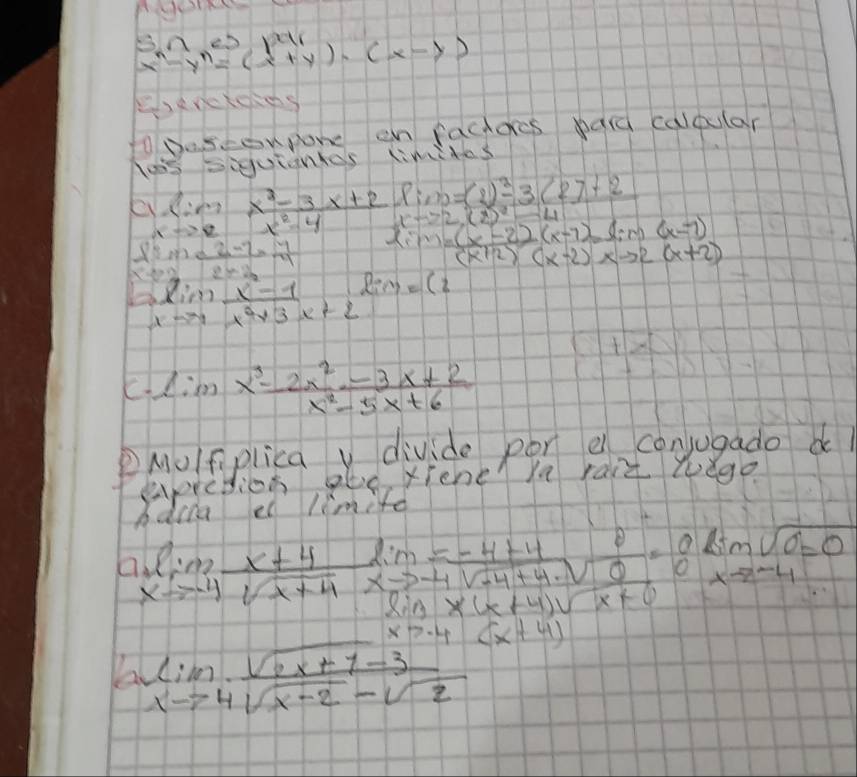 Si n es par
x^n - y^n = (x + y) . (x - y)
Ejercicios
1) Descompone en factores para calcular
los siguientes limites
a. lim x→2 (x² - 3x + 2)/(x² - 4) lim x→2 = ((2)² - 3(2) + 2)/((2)² - 4)
lim = ((x - 2)(x - 1))/((x + 2)(x - 2)) = lim x→2 (x - 1)/(x + 2)
lim x→2
b. lim x→1 (x - 1)/(x² + 3x + 2) lim = (1
c. lim (x³ - 2x² - 3x + 2)/(x² - 5x + 6)
2) Multiplica y divide por el conjugado de l
exprecsion que tiene la raiz luego
el limite
a. lim x→-4 (x + 4)/√(x + 4) lim x→-4 = (-4 + 4)/√(-4 + 4) 0/0 lim x→-4 √0 = 0
lim x→-4 (x + 4)
b. lim x→4 (√(2x + 1) - 3)/(√(x - 2) - √2)